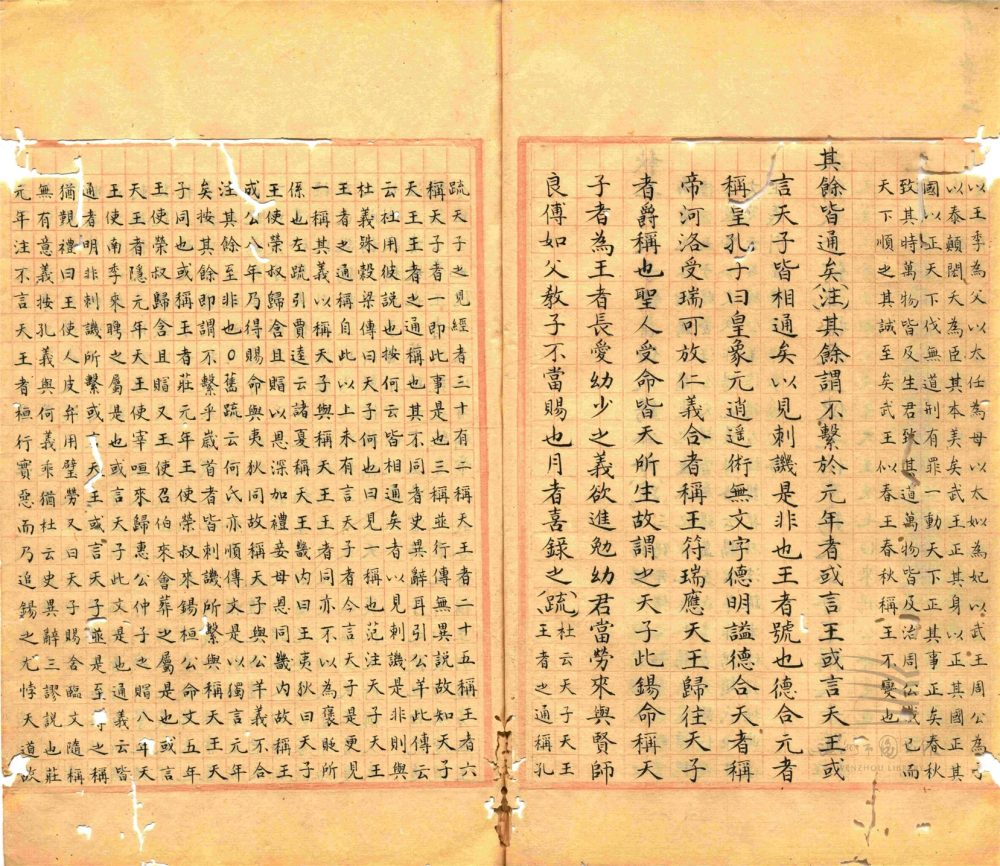 以王季為父以太任為母以太姒為妃以武王周公為子
以泰顛閎夭為臣其本美矣武王正其身以正其國正其
國以正天下伐無道刑有罪一動天下正其事正矣春秋
致其時萬物皆反生君致其道萬物皆及治周公戴己而
天下順之其誠至矣武王似春王春秋稱王不變也
其餘皆通矣注其餘謂不繫於元年者或言王或言天王或
言天子皆相通矣以見刺譏是非也王者號也德合元者
稱皇孔子曰皇象元逍遥術無文字德明謚德合天者稱
帝河洛受瑞可放仁義合者稱王符瑞應天王歸往天子
者爵稱也聖人受命皆天所生故謂之天子此錫命稱天
子者為王者長愛幼少之義欲進勉幼君當勞來與賢師
良傅如父教子不當賜也月者喜錄之疏杜云天子天王
王者之通稱孔
疏天子之見經者三十有二稱天王者二十五稱王者六
稱天子者一即此事是也三稱並行傳無異說故知天子
天王王者之通稱也其不同者史異辭耳引公羊此傳云
云杜用彼說也按何云皆相通矣者以見刺譏是非則與
杜義殊穀梁傳曰天子何也曰見一稱也范注天子天王
王者之通稱自此以上未有言天子者今言天子是更見
一稱其義以稱天子與稱天王者同亦不以為褒貶所
係也左疏引賈逵云諸夏稱天王畿內曰王夷狄曰天子
王使榮叔歸含且賵以恩深加禮妾母恩同畿內故稱王
成公八年乃得賜命與夷狄同故稱天子與公羊義不合
注其餘至非也○舊疏云何氏亦順傳文是以獨言元年
矣按其餘即謂不繫乎歲首者皆刺譏所繫與稱天王天
子同也或稱王者莊元年王使榮叔來錫桓公命文五年
王使榮叔歸含且賵又王使召伯來會葬之屬是也或言
天王者隱元年天王使宰咺來歸惠公仲子之賵八年天
王使南季來聘之屬是也或言天子此文是也通義云皆
通者明非刺譏所繫或言天王或言天子並是至尊之稱
猶覲禮曰王使人皮弁用璧勞又曰天子賜舍臨文隨稱
無有意義按孔義與何義乖猶杜云史異辭三謬說也莊
元年注不言天王者桓行實惡而乃追錫之尤悖天道故